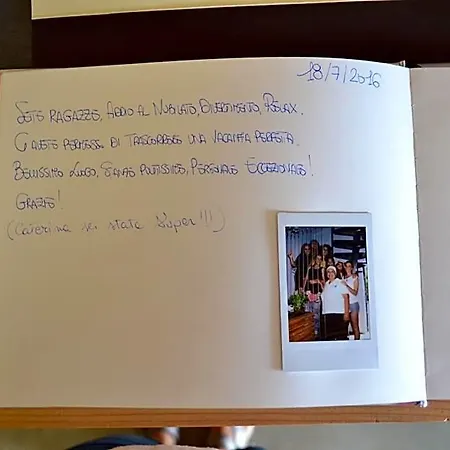 18/7/2016
SETTE RAGAZZE, ADDIO AL NUBILATO, DIVERTIMENTO, RELAX.
CI AVETE PERMESSO DI TRASCORRERE UNA VACANZA PERFETTA.
BELLISSIMO LUOGO, STANZE PULITISSIME, PERSONALE ECCEZIONALE!
GRAZIE!
(Caterina sei stata super!!!)